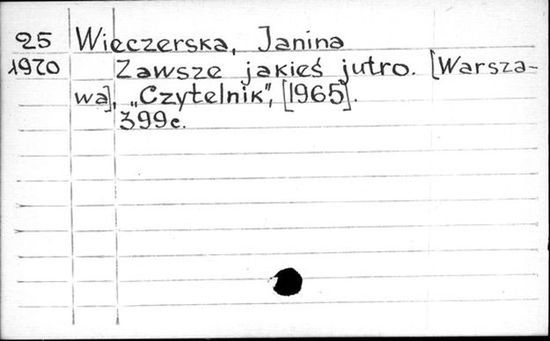 25 Wieczerska, Janina
1970 Zawsze jakieś jutro. [Warsza-
wa], „Czytelnik”, [1965].
399c.